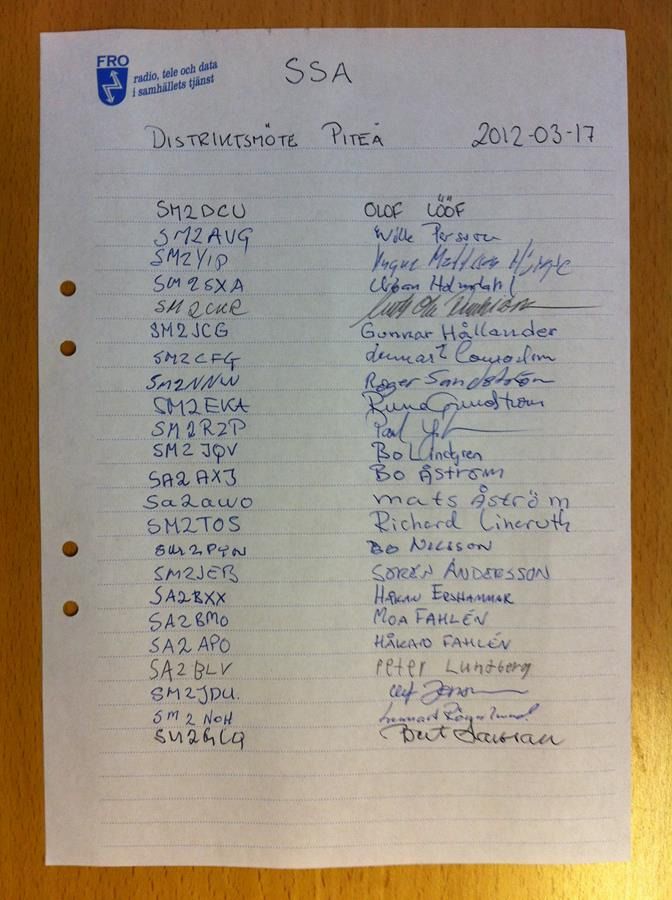 FRO
radio, tele och data
i samhällets tjänst
SSA
DISTRIKTSMÖTE PITEÅ 2012-03-17
SM2DCU OLOF LÖÖF
SM2AVG Wille Persson
SM2YIP
SM2SXA Urban Holmdahl
SM2CKR
SM2JCG Gunnar Hållander
SM2CFG Lennart
SM2NNW Roger Sandström
SM2EKA Rune Grundström
SM2RZP Paul
SM2JQV Bo Lindgren
SA2AXJ BO ÅSTRÖM
Sa2awo mats Åström
SM2TOS Richard Lineruth
BO NILSSON
SM2JEB SÖREN ANDERSSON
SA2BXX HÅKAN ERSHAMMAR
SA2BMO MOA FAHLÉN
SA2APO HÅKAN FAHLÉN
SA2BLV Peter Lundberg
SM2JDU.
SM2NOH Lennart
Bert